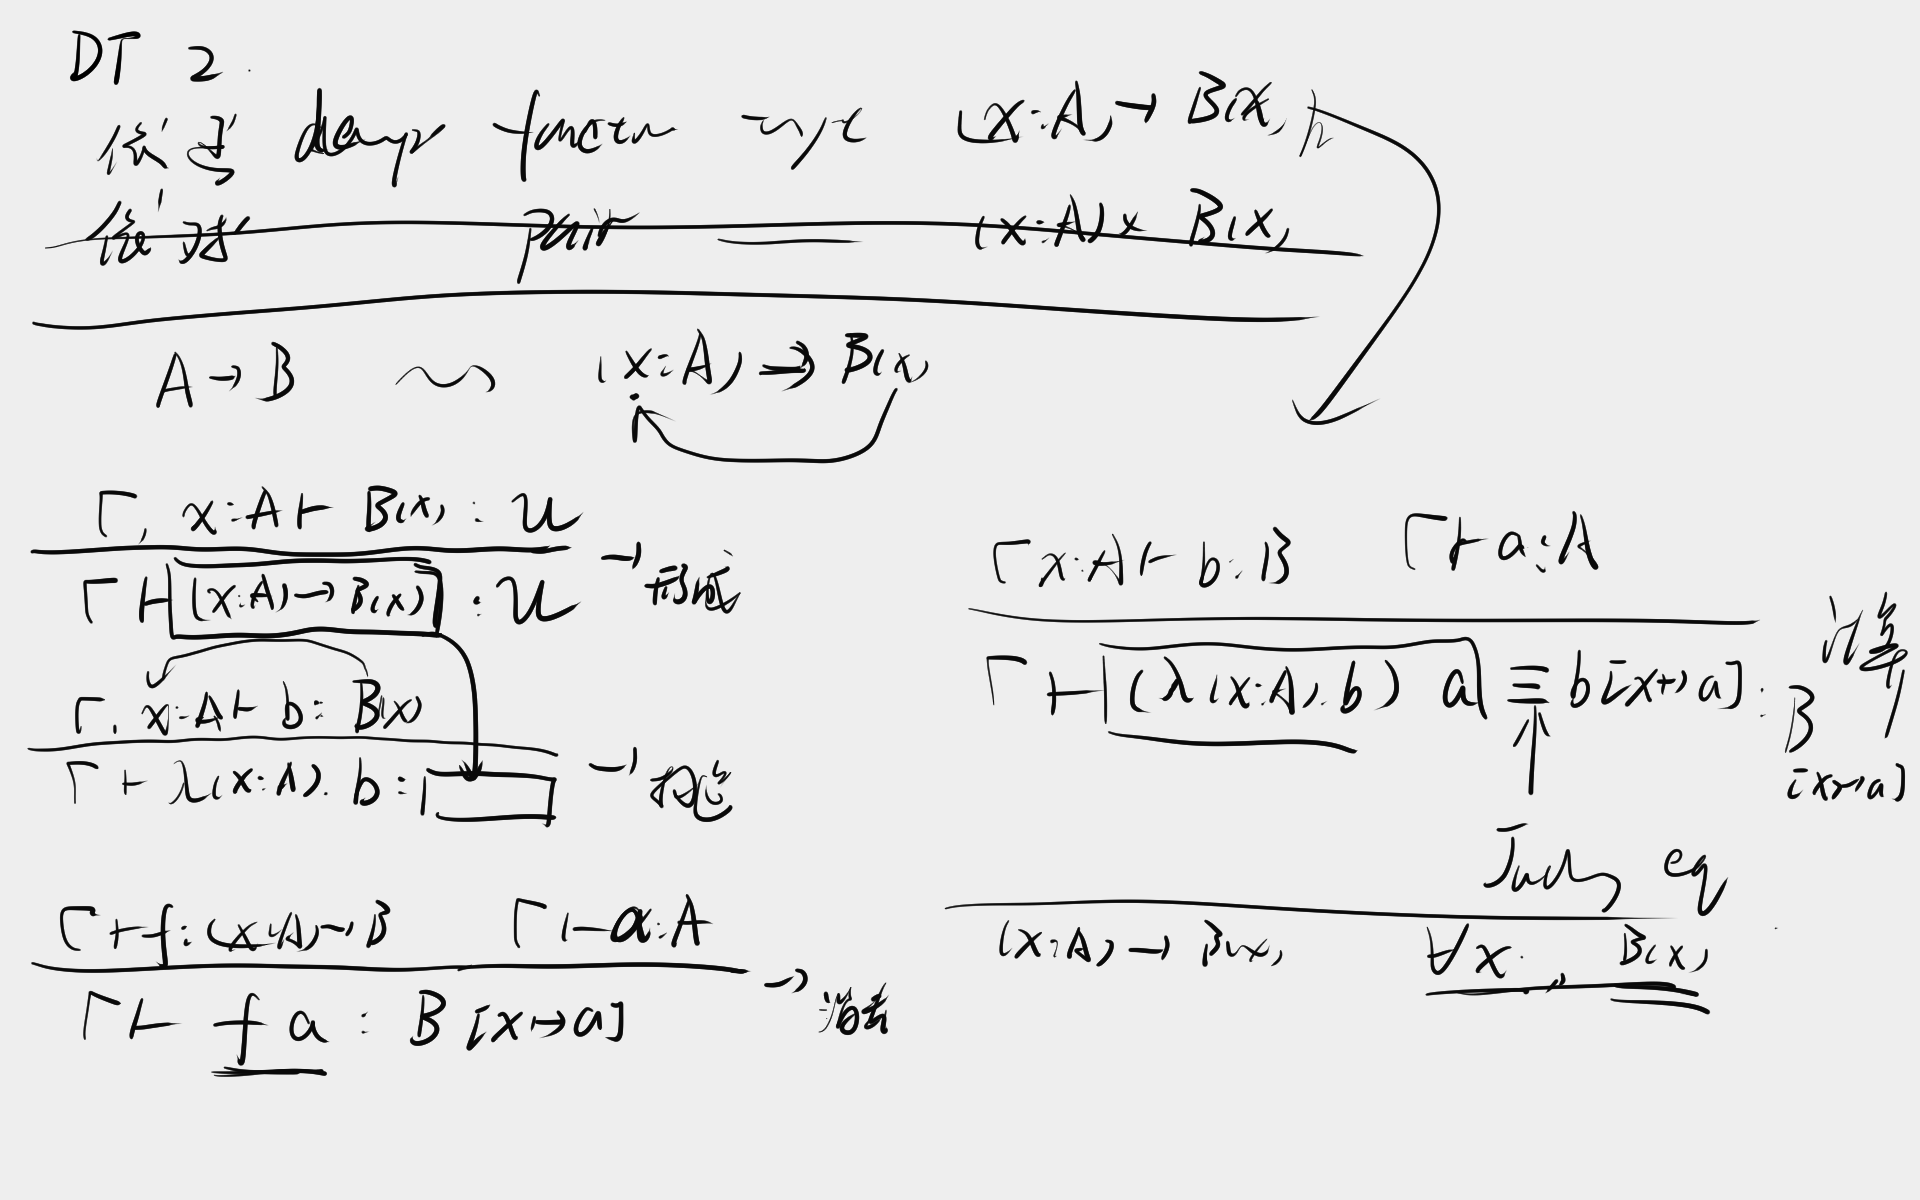 DT 2
依 function type (x:A)→B(x)
依对 pair (x:A)×B(x)
A→B (x:A)→B(x)
Γ, x:A⊢B(x):U
Γ⊢(x:A)→B(x):U →形成
Γ, x:A⊢b:B(x)
Γ⊢λ(x:A).b: →构造
Γ⊢f:(x:A)→B Γ⊢a:A
Γ⊢f a:B[x↦a] →消去
Γ x:A⊢b:B Γ⊢a:A
Γ⊢(λ(x:A).b) a≡b[x↦a]:B[x↦a] 计算
eq
(x:A)→B(x) ∀x, B(x)